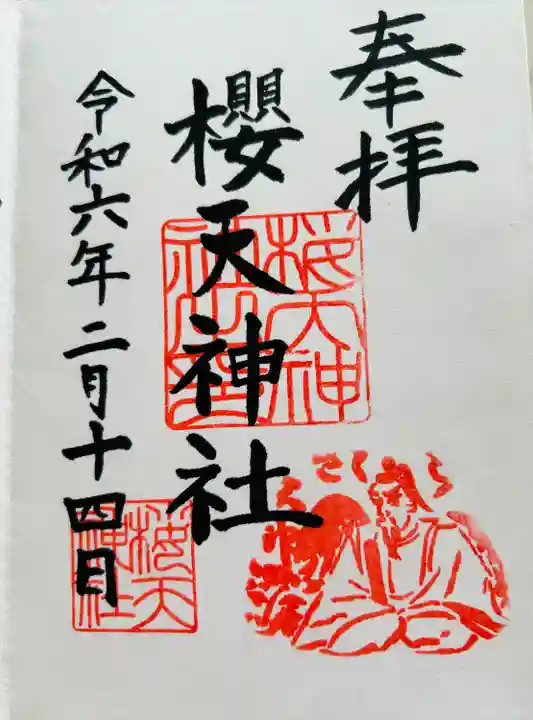 奉拝
櫻天神社
令和六年二月十四日
桜天神
社之印
さくら
桜天
神社